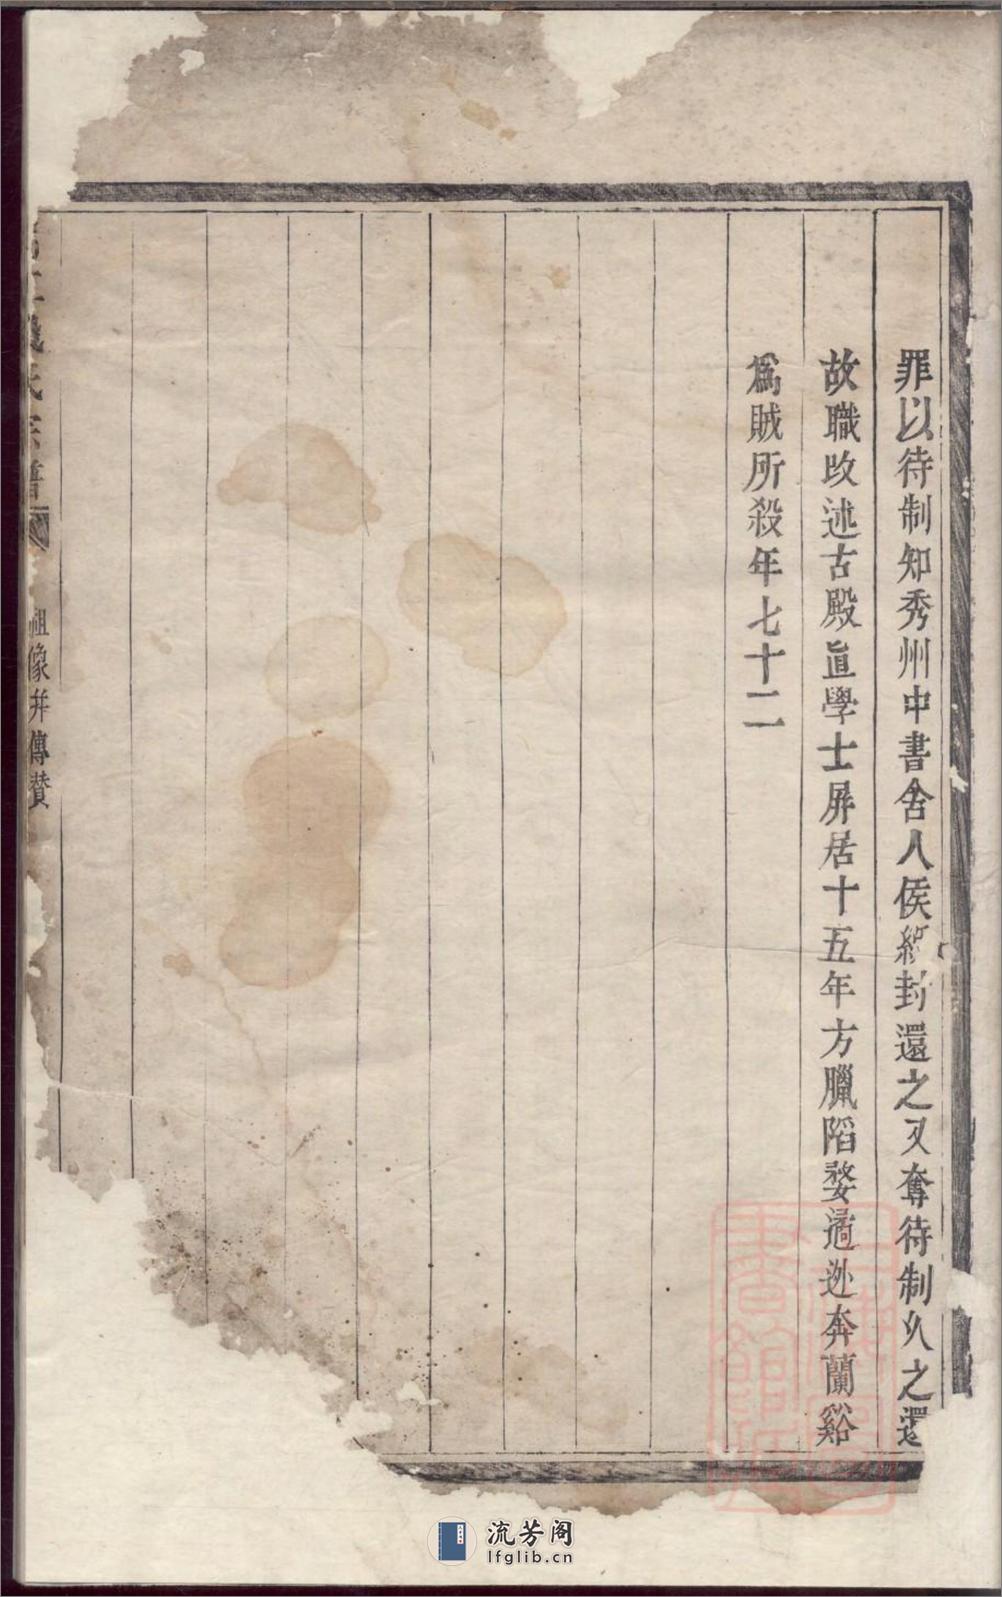 罪以待制知秀州中書舍人侯綬封還之又奪待制久之還
故職改述古殿直學士屏居十五年方臘陷婺遁逃奔蘭谿
為賊所殺年七十二
氏宗譜
祖像并傳贊
流芳阁
lfglib.cn